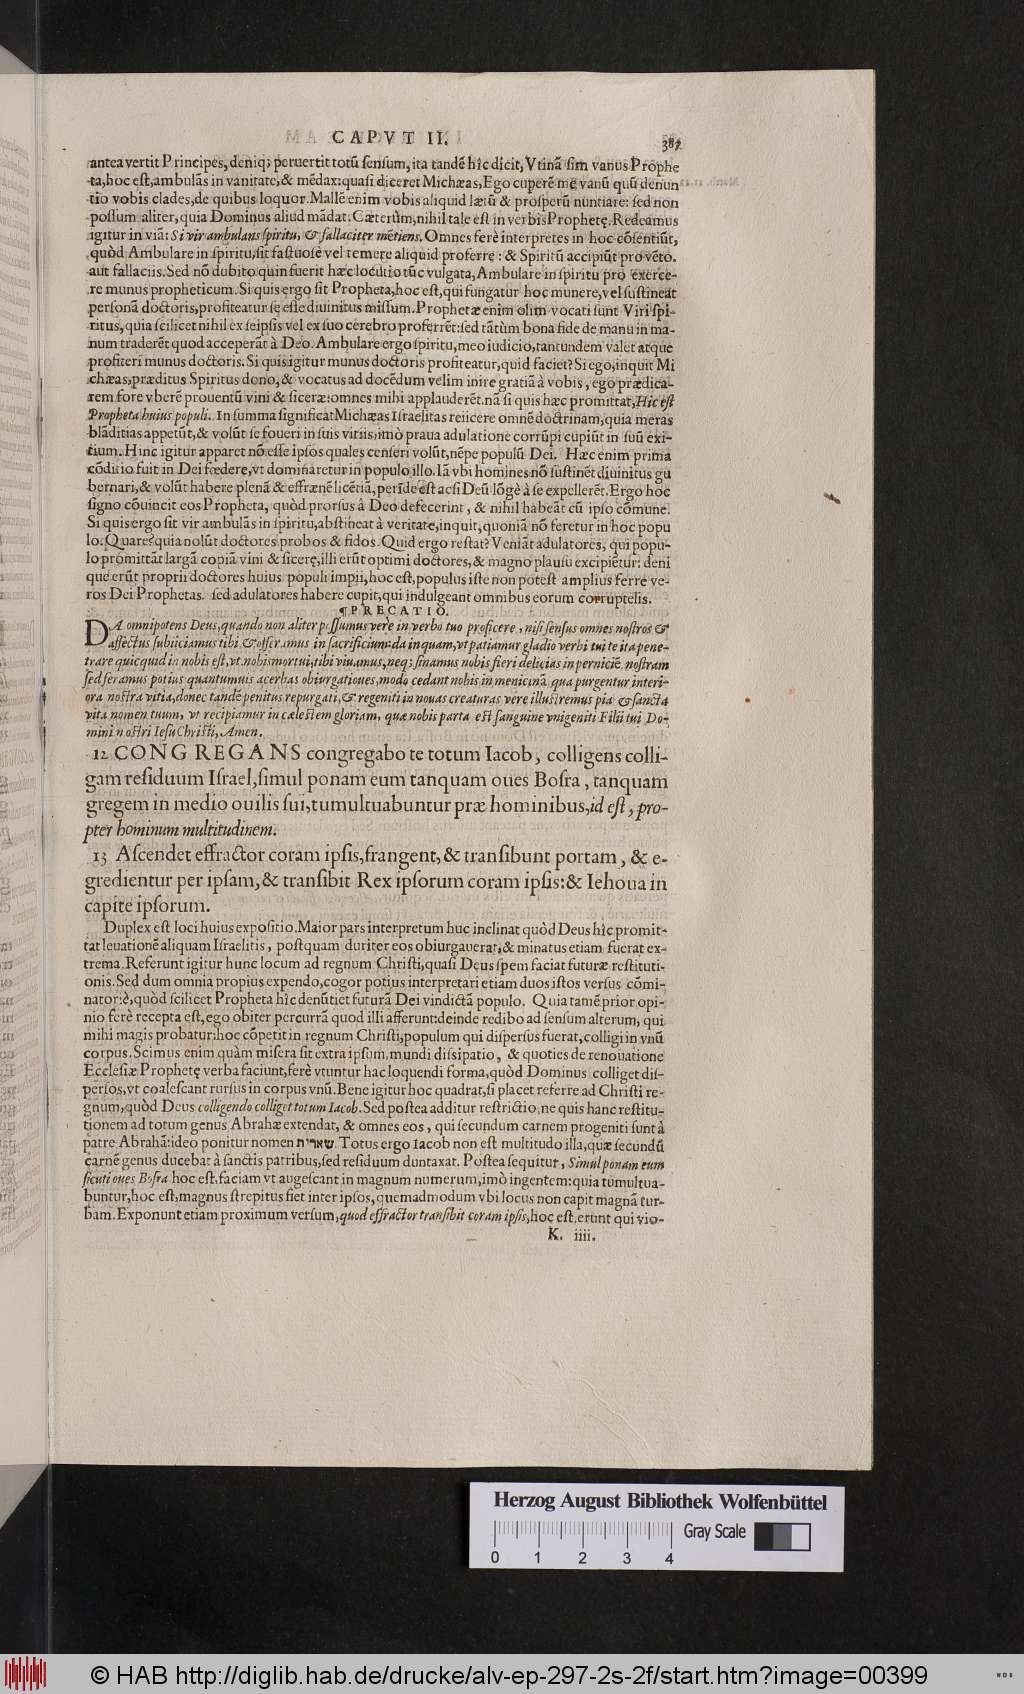 CAPVT II.
387
antea vertit Principes, deniq; peruertit totũ sensum, ita tandẽ hîc dicit, Vtinã sim vanus Prophe
ta, hoc est, ambulãs in vanitate, & mẽdax: quasi diceret Michæas, Ego cuperẽ me vanũ quũ denun
tio vobis clades, de quibus loquor. Mallẽ enim vobis aliquid lætũ & prosperũ nuntiare: sed non
possum aliter, quia Dominus aliud mãdat. Cæterùm, nihil tale est in verbis Prophetę. Redeamus
igitur in viã: Si vir ambulans spiritu, & fallaciter mẽtiens. Omnes ferè interpretes in hoc cõsentiũt,
quòd Ambulare in spiritu, sit fastuosè vel temere aliquid proferre: & Spiritũ accipiũt pro vẽto.
aut fallaciis. Sed nõ dubito quin fuerit hæc locutio tũc vulgata, Ambulare in spiritu pro exerce-
re munus propheticum. Si quis ergo sit Propheta, hoc est, qui fungatur hoc munere, vel sustineat
personã doctoris, profiteatur se esse diuinitus missum. Prophetæ enim olim vocati sunt Viri spi-
ritus, quia scilicet nihil ex seipsis vel ex suo cerebro proferrẽt: sed tãtùm bona fide de manu in ma-
num traderẽt quod acceperãt à Deo. Ambulare ergo spiritu, meo iudicio, tantundem valet atque
profiteri munus doctoris. Si quis igitur munus doctoris profiteatur, quid faciet? Si ego, inquit Mi
chæas, præditus Spiritus dono, & vocatus ad docẽdum velim inire gratiã à vobis, ego prædica-
rem fore vberẽ prouentũ vini & siceræ: omnes mihi applauderẽt. nã si quis hæc promittat, Hic est
Propheta huius populi. In summa significat Michæas Israelitas reiicere omnẽ doctrinam, quia meras
blãditias appetũt, & volũt se foueri in suis vitiis: imò praua adulatione corrũpi cupiũt in suũ exi-
tium. Hinc igitur apparet nõ esse ipsos quales censeri volũt, nẽpe populũ Dei. Hæc enim prima
cõditio fuit in Dei fœdere, vt dominaretur in populo illo. Iã vbi homines nõ sustinẽt diuinitus gu
bernari, & volũt habere plenã & effrænẽ licẽtiã, perĩde est acsi Deũ lõgè à se expellerẽt. Ergo hoc
signo cõuincit eos Propheta, quòd prorsus à Deo defecerint, & nihil habeãt cũ ipso cõmune.
Si quis ergo sit vir ambulãs in spiritu, abstineat à veritate, inquit, quoniã nõ feretur in hoc popu
lo. Quare? quia nolũt doctores probos & fidos. Quid ergo restat? Veniãt adulatores, qui popu-
lo promittãt largã copiã vini & sicerę, illi erũt optimi doctores, & magno plausu excipiẽtur: deni
que erũt proprii doctores huius populi impii, hoc est, populus iste non potest amplius ferre ve-
ros Dei Prophetas. sed adulatores habere cupit, qui indulgeant omnibus eorum corruptelis.
¶ PRECATIO.
DA omnipotens Deus, quando non aliter possumus vere in verbo tuo proficere, nisi sensus omnes nostros &
affectus subiiciamus tibi & offeramus in sacrificium: da inquam, vt patiamur gladio verbi tui te ita pene-
trare quicquid in nobis est, vt nobis mortui, tibi viuamus, neq; sinamus nobis fieri delicias in perniciẽ nostram
sed feramus potius quantumuis acerbas obiurgationes, modo cedant nobis in medicinã qua purgentur interi-
ora nostra vitia, donec tandẽ penitus repurgati, & regeniti in nouas creaturas vere illustremus pia & sancta
vita nomen tuum, vt recipiamur in cælestem gloriam, quæ nobis parta est sanguine vnigeniti Filii tui Do-
mini nostri Iesu Christi, Amen.
12 CONGREGANS congregabo te totum Iacob, colligens colli-
gam residuum Israel, simul ponam eum tanquam oues Bosra, tanquam
gregem in medio ouilis sui, tumultuabuntur præ hominibus, id est, pro-
pter hominum multitudinem.
13 Ascendet effractor coram ipsis, frangent, & transibunt portam, & e-
gredientur per ipsam, & transibit Rex ipsorum coram ipsis: & Iehoua in
capite ipsorum.
Duplex est loci huius expositio. Maior pars interpretum huc inclinat quòd Deus hîc promit-
tat leuationẽ aliquam Israelitis, postquam duriter eos obiurgauerat, & minatus etiam fuerat ex-
trema. Referunt igitur hunc locum ad regnum Christi, quasi Deus spem faciat futuræ restituti-
onis. Sed dum omnia propius expendo, cogor potius interpretari etiam duos istos versus cõmi-
natoriè, quòd scilicet Propheta hîc denũtiet futurã Dei vindictã populo. Quia tamẽ prior opi-
nio ferè recepta est, ego obiter percurrã quod illi afferunt: deinde redibo ad sensum alterum, qui
mihi magis probatur: hoc cõpetit in regnum Christi, populum qui dispersus fuerat, colligi in vnũ
corpus. Scimus enim quàm misera sit extra ipsum mundi dissipatio, & quoties de renouatione
Ecclesiæ Prophetę verba faciunt, ferè vtuntur hac loquendi forma, quòd Dominus colliget dis-
persos, vt coalescant rursus in corpus vnũ. Bene igitur hoc quadrat, si placet referre ad Christi re-
gnum, quòd Deus colligendo colliget totum Iacob. Sed postea additur restrictio, ne quis hanc restitu-
tionem ad totum genus Abrahæ extendat, & omnes eos, qui secundum carnem progeniti sunt à
patre Abrahã: ideo ponitur nomen שארית. Totus ergo Iacob non est multitudo illa, quæ secundũ
carnẽ genus ducebat à sanctis patribus, sed residuum duntaxat. Postea sequitur, Simul ponam eum
sicuti oues Bosra hoc est. faciam vt augescant in magnum numerum, imò ingentem: quia tumultua-
buntur, hoc est, magnus strepitus fiet inter ipsos, quemadmodum vbi locus non capit magnã tur-
bam. Exponunt etiam proximum versum, quod effractor transibit coram ipsis, hoc est, erunt qui vio-
K. iiii.
Herzog August Bibliothek Wolfenbüttel
Gray Scale
0 1 2 3 4
© HAB http://diglib.hab.de/drucke/alv-ep-297-2s-2f/start.htm?image=00399